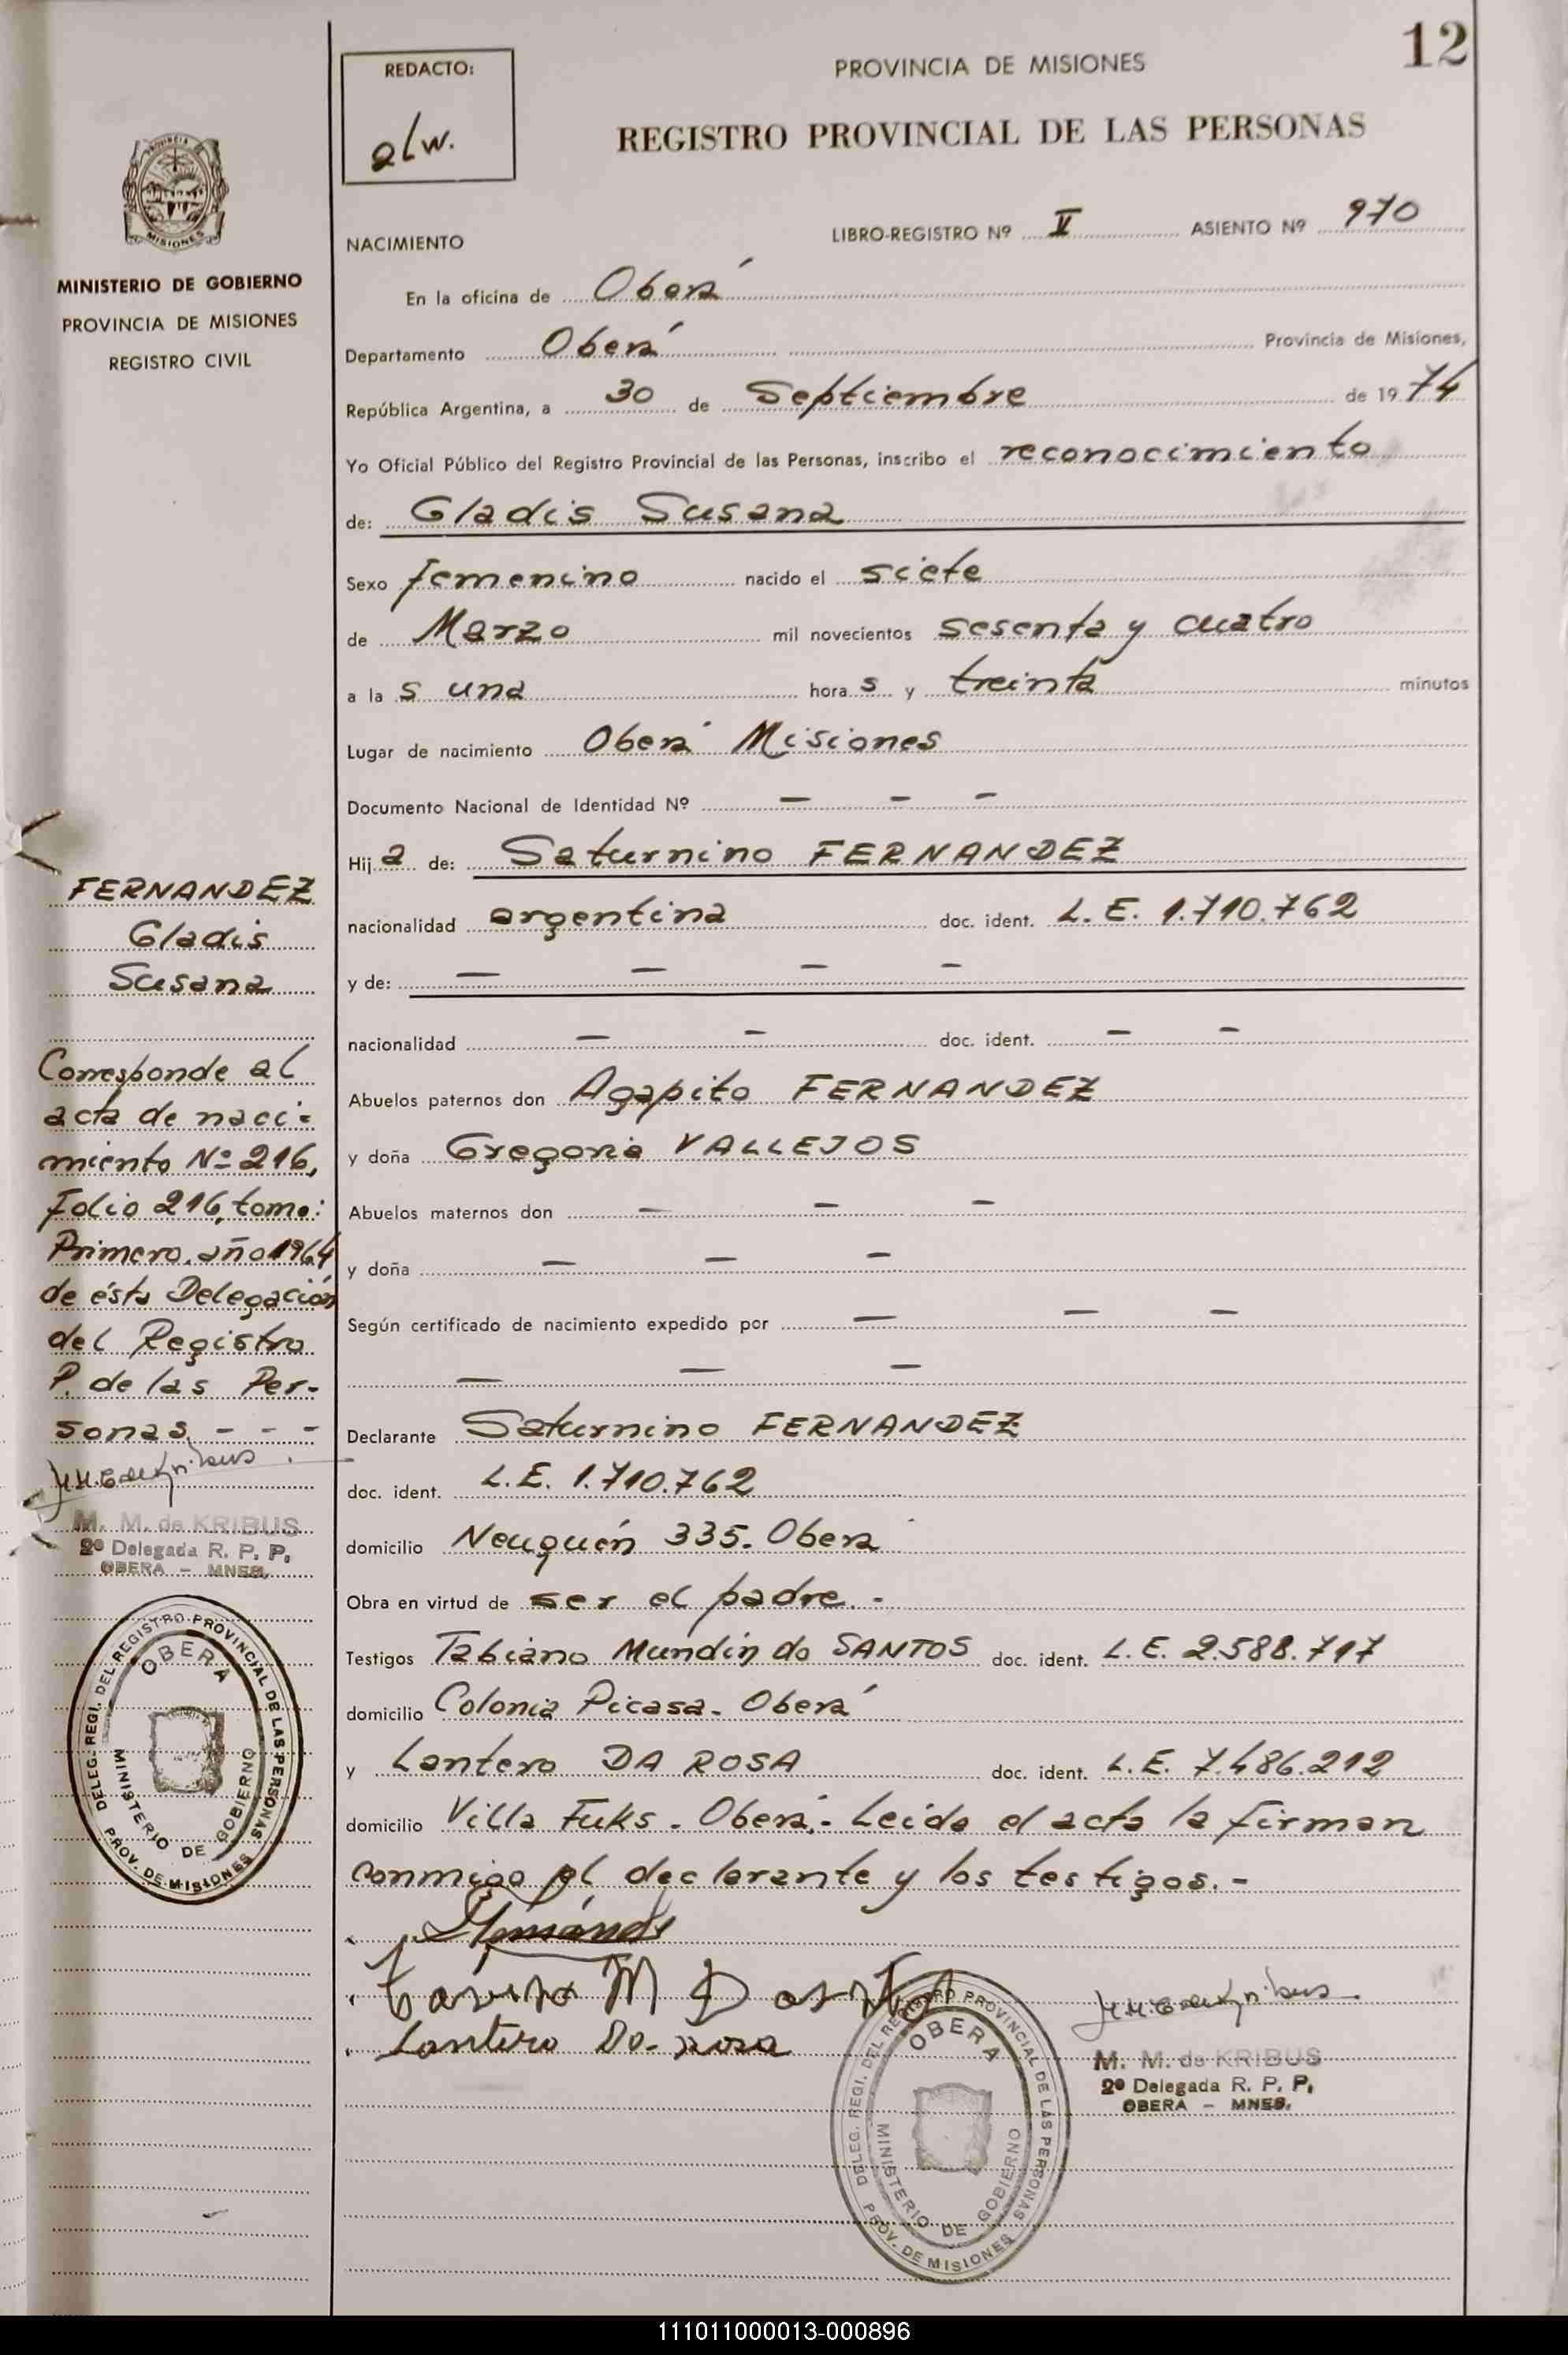 12
REDACTO:
alw.
PROVINCIA DE MISIONES
REGISTRO PROVINCIAL DE LAS PERSONAS
MISIONES
MINISTERIO DE GOBIERNO
PROVINCIA DE MISIONES
REGISTRO CIVIL
NACIMIENTO
LIBRO-REGISTRO Nº II ASIENTO Nº 970
En la oficina de Oberá
Departamento Oberá Provincia de Misiones,
República Argentina, a 30 de Septiembre de 1974
Yo Oficial Público del Registro Provincial de las Personas, inscribo el reconocimiento
de: Gladis Susana
Sexo femenino nacido el siete
de Marzo mil novecientos sesenta y cuatro
a las una horas y treinta minutos
Lugar de nacimiento Oberá Misiones
Documento Nacional de Identidad Nº — — —
Hija de: Saturnino FERNANDEZ
nacionalidad argentina doc. ident. L.E. 1.710.762
y de: — — — —
nacionalidad — — doc. ident. — —
Abuelos paternos don Agapito FERNANDEZ
y doña Gregoria VALLEJOS
Abuelos maternos don — — —
y doña — — —
Según certificado de nacimiento expedido por — — —
— — —
Declarante Saturnino FERNANDEZ
doc. ident. L.E. 1.710.762
domicilio Neuquén 335. Oberá
Obra en virtud de ser el padre. -
Testigos Fabiano Mundin do SANTOS doc. ident. L.E. 2.588.717
domicilio Colonia Picasa. Oberá
y Lantero DA ROSA doc. ident. L.E. 7.486.212
domicilio Villa Fuks. Oberá.- Leida el acta la firman
conmigo el declarante y los testigos. -
Lantero Da. rosa
M. M. de KRIBUS
2º Delegada R. P. P.
OBERA — MNES.
DELEG. REGI. DEL REGISTRO PROVINCIAL DE LAS PERSONAS
OBERA
MINISTERIO DE GOBIERNO
PROV. DE MISIONES
FERNANDEZ
Gladis
Susana
Corresponde al
acta de naci-
miento Nº 216,
Folio 216, tomo:
Primero, año 1964
de ésta Delegación
del Registro
P. de las Per-
sonas. - - -
M. M. de KRIBUS
2º Delegada R. P. P.
OBERA — MNES.
DELEG. REGI. DEL REGISTRO PROVINCIAL DE LAS PERSONAS
OBERA
MINISTERIO DE GOBIERNO
PROV. DE MISIONES
111011000013-000896